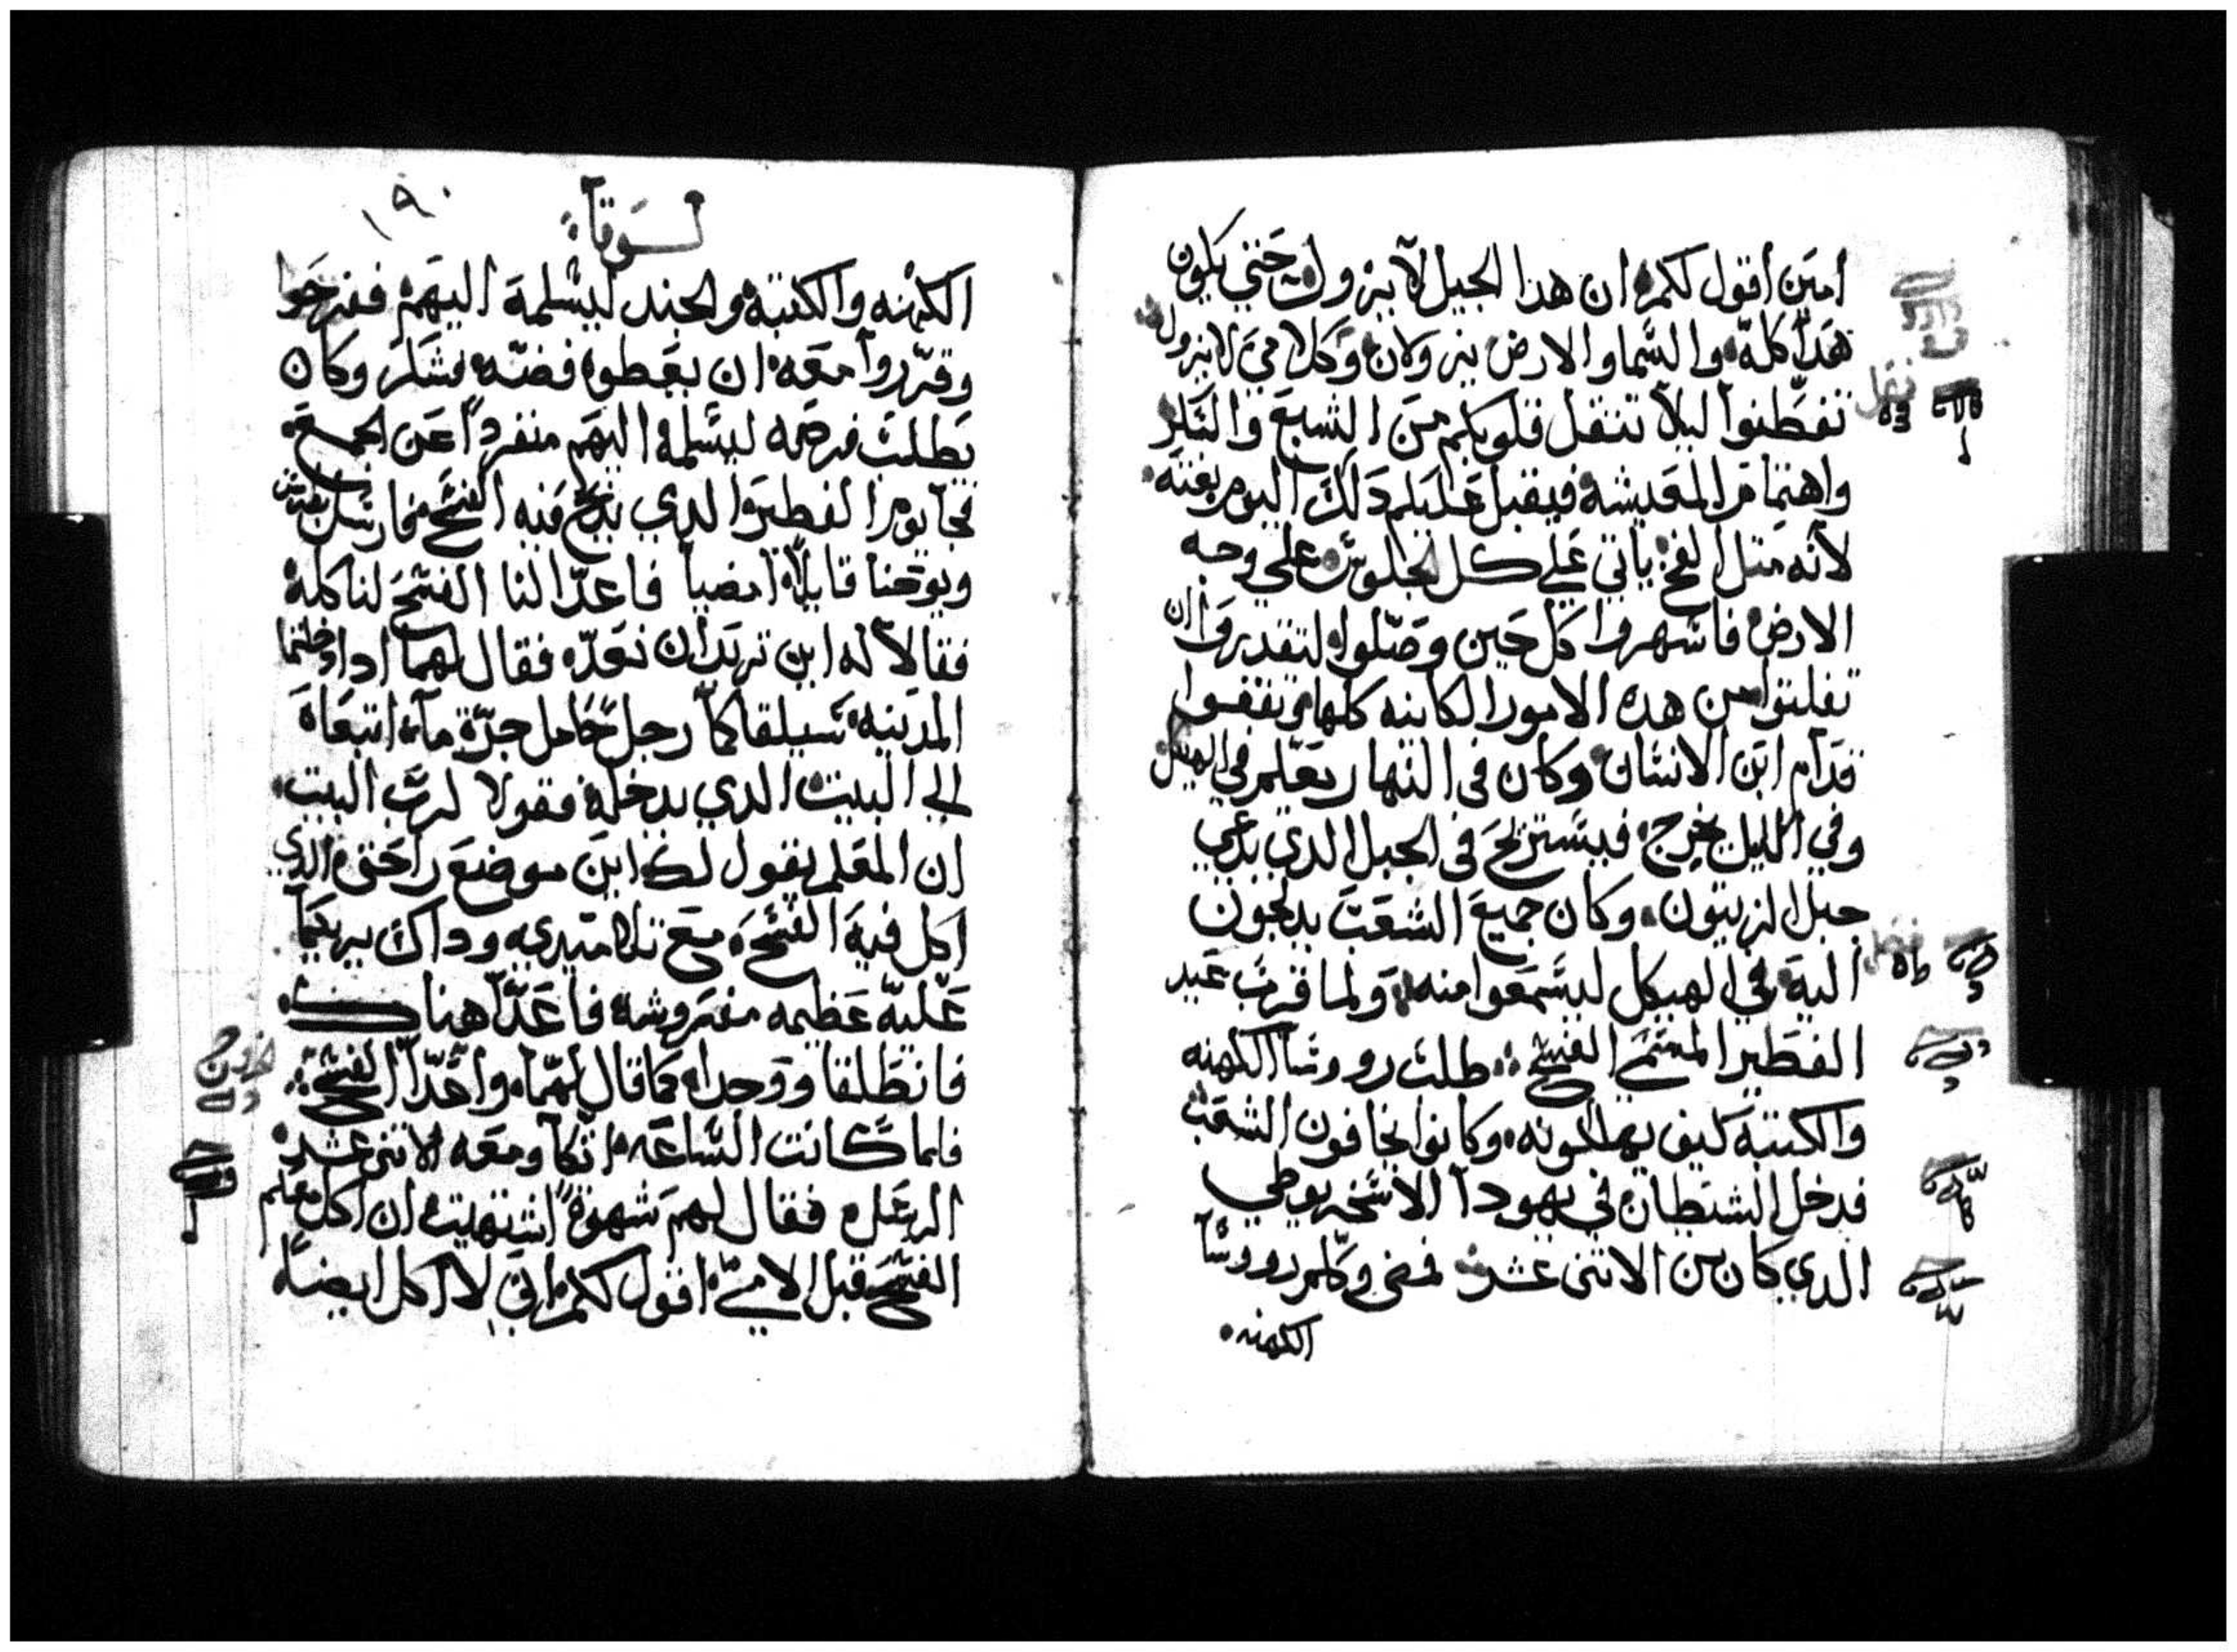 امين اقول لكم ان هذا الجيل لا يزول حتي يكون
هذا كله والسما والارض يزولان وكلامي لا يزول
تفطنوا ليلا تثقل قلوبكم من الشبع والسكر
واهتمام المعيشه فيقبل عليكم دلك اليوم بغته
لانه متل الفخ ياتي علي كل الجلوس علي وجه
الارض فاسهروا كل حين وصلوا لتقدروا ان
تفلتوا من هده الامور الكاينه كلها وتقفوا
قدام ابن الانسان وكان في النهار يعلم في الهيكل
وفي الليل يخرج فيستريح في الجبل الدي يدعي
جبل الزيتون وكان جميع الشعب يدلجون
اليه في الهيكل ليسمعوا منه ولما قرب عيد
الفطير المسمي الفسح طلب رووسا الكهنه
والكتبه كيف يهلكونه وكانوا يخافون الشعب
فدخل الشيطان في يهودا الاسخريوطي
الدي كان من الاتني عشر فمضي وكلم رووسا
الكهنه
لوقا
١٩٠
الكهنه والكتبه والجند ليسلمه اليهم ففرحوا
وقرروا معه ان يعطوه فضه فشكر وكان
يطلب فرصه ليسلمه اليهم منفردا عن الجمع
فجا يوم الفطير الدي يدبح فيه الفسح فارسل بطرس
ويوحنا قايلا امضيا فاعدا لنا الفسح لناكله
فقالا له اين تريد ان نعده فقال لهما ادا دخلتما
المدينه سيلقاكما رجل حامل جرة ما اتبعاه
الي البيت الدي يدخله فقولا لرب البيت
ان المعلم يقول لك اين موضع راحتي الدي
اكل فيه الفسح مع تلاميدي وداك يريكما
عليه عظيمه مفروشه فاعدا هناك
فانطلقا ووجدا كما قال لهما واعدا الفسح
فلما كانت الساعه اتكا ومعه الاتني عشر
الرسل فقال لهم شهوة اشتهيت ان اكل معكم
الفسح قبل الامي اقول لكم اني لا اكل ايضا